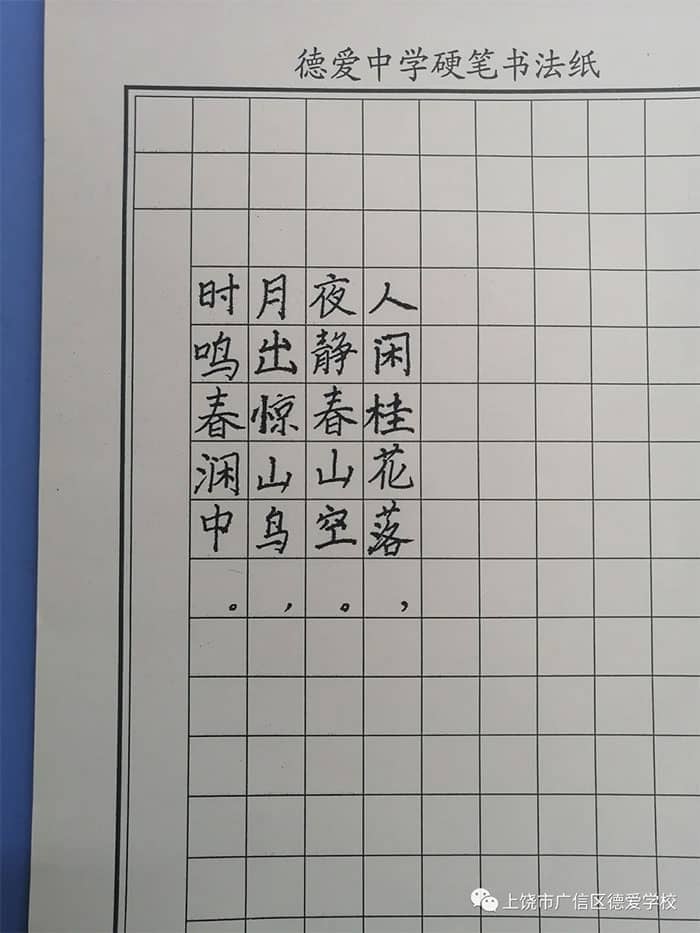 德爱中学硬笔书法纸
人闲桂花落，
夜静春山空。
月出惊山鸟，
时鸣春涧中。
上饶市广信区德爱学校